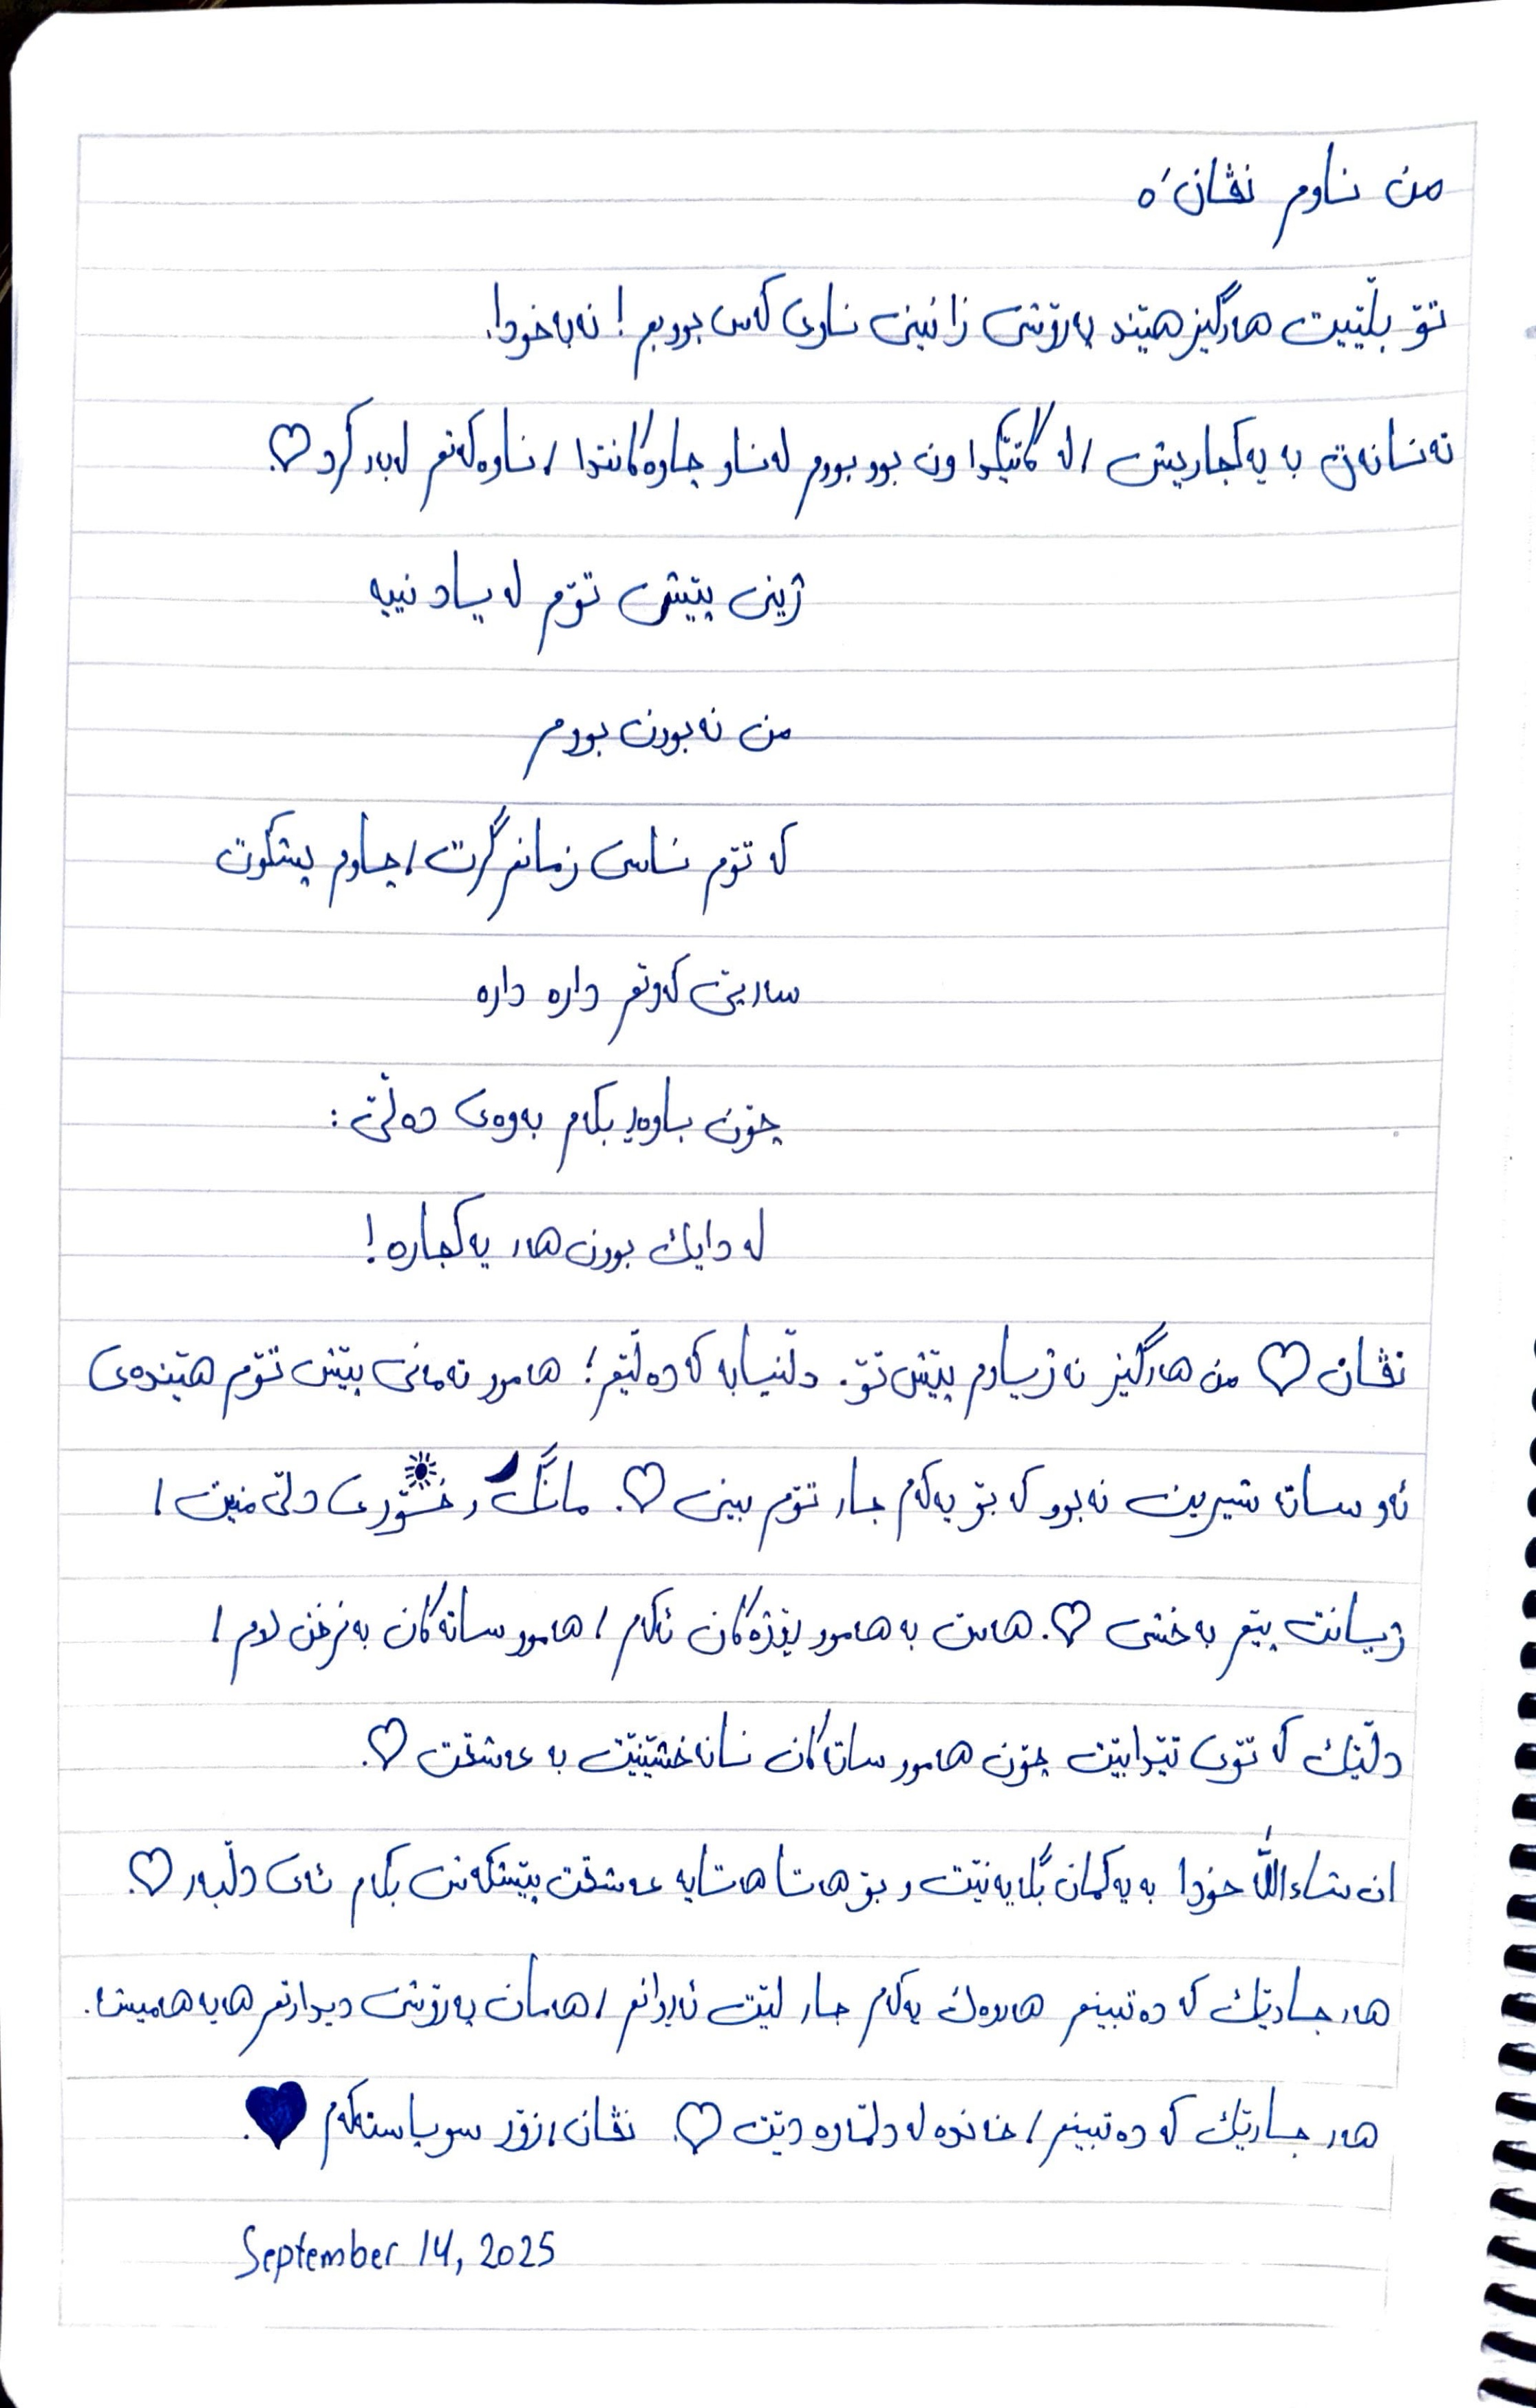 من ناوم نڤان'ە
تۆ بڵێیت هەرگیز هێند پەرۆشی زانینی ناوی کەس بووبم! نەبەخودا.
تەنانەت بە یەکجاریش، لە کاتێکدا ون بوو بووم لەناو چاوەکانتدا، ناوەکەتم لەبەر کرد ♡.
ژینی پێش تۆم لە یاد نییە
من نەبوون بووم
کە تۆم ناسی زمانم گرت، چاوم پشکوت
سەرپێ کەوتم دارە دارە
چۆن باوەڕ بکەم بەوەی دەڵێ:
لە دایك بوون هەر یەکجارە!
نڤان ♡ من هەرگیز نەژیاوم پێش تۆ. دڵنیابە کە دەڵێم؛ هەموو تەمەنی پێش تۆم هێندەی
ئەو ساتە شیرین نەبوو کە بۆ یەکەم جار تۆم بینی ♡. مانگ و خۆری دڵی منیت،
ژیانت پێم بەخشی ♡. هەست بە هەموو ڕۆژەکان ئەکەم، هەموو ساتەکان بەنرخن لام،
دڵێك کە تۆی تێدابێت چۆن هەموو ساتەکان نانەخشێنێت بە عەشقت ♡.
ان شاءاللّٰه خودا بە یەکمان بگەیەنێت و بۆ هەتا هەتایە عەشقت پێشکەش بکەم ئەی دڵبەر ♡.
هەر جارێك کە دەتبینم هەروەك یەکەم جار لێت ئەڕوانم، هەمان پەرۆشی دیدارتم هەیە هەمیشە.
هەر جارێك کە دەتبینم، خانوە لە دڵمارە دێت ♡. نڤان، زۆر سوپاستەکەم ♥.
September 14, 2025